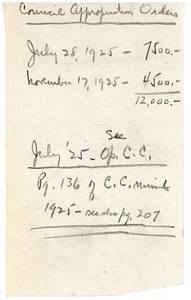 Council Appropriation Orders
July 28, 1925 - 7500.-
November 17, 1925 - 4500.-
12,000.-
See
July '25 - Op. C.C.
Pg. 136 of C.C. minutes
1925 - see also pg. 207